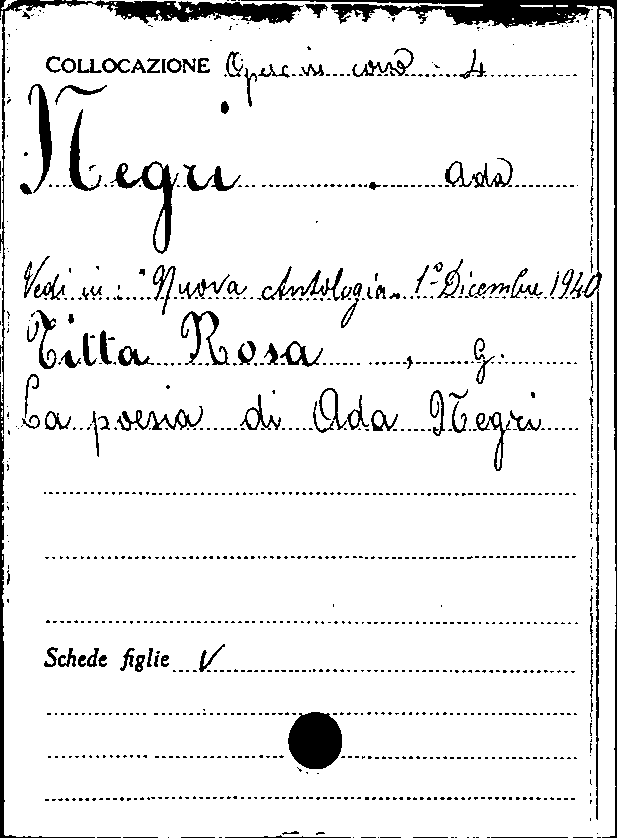 COLLOCAZIONE Opere in corso - 4
Negri . Ada
Vedi in: "Nuova Antologia" 1º Dicembre 1940
Titta Rosa , G.
La poesia di Ada Negri
Schede figlie V